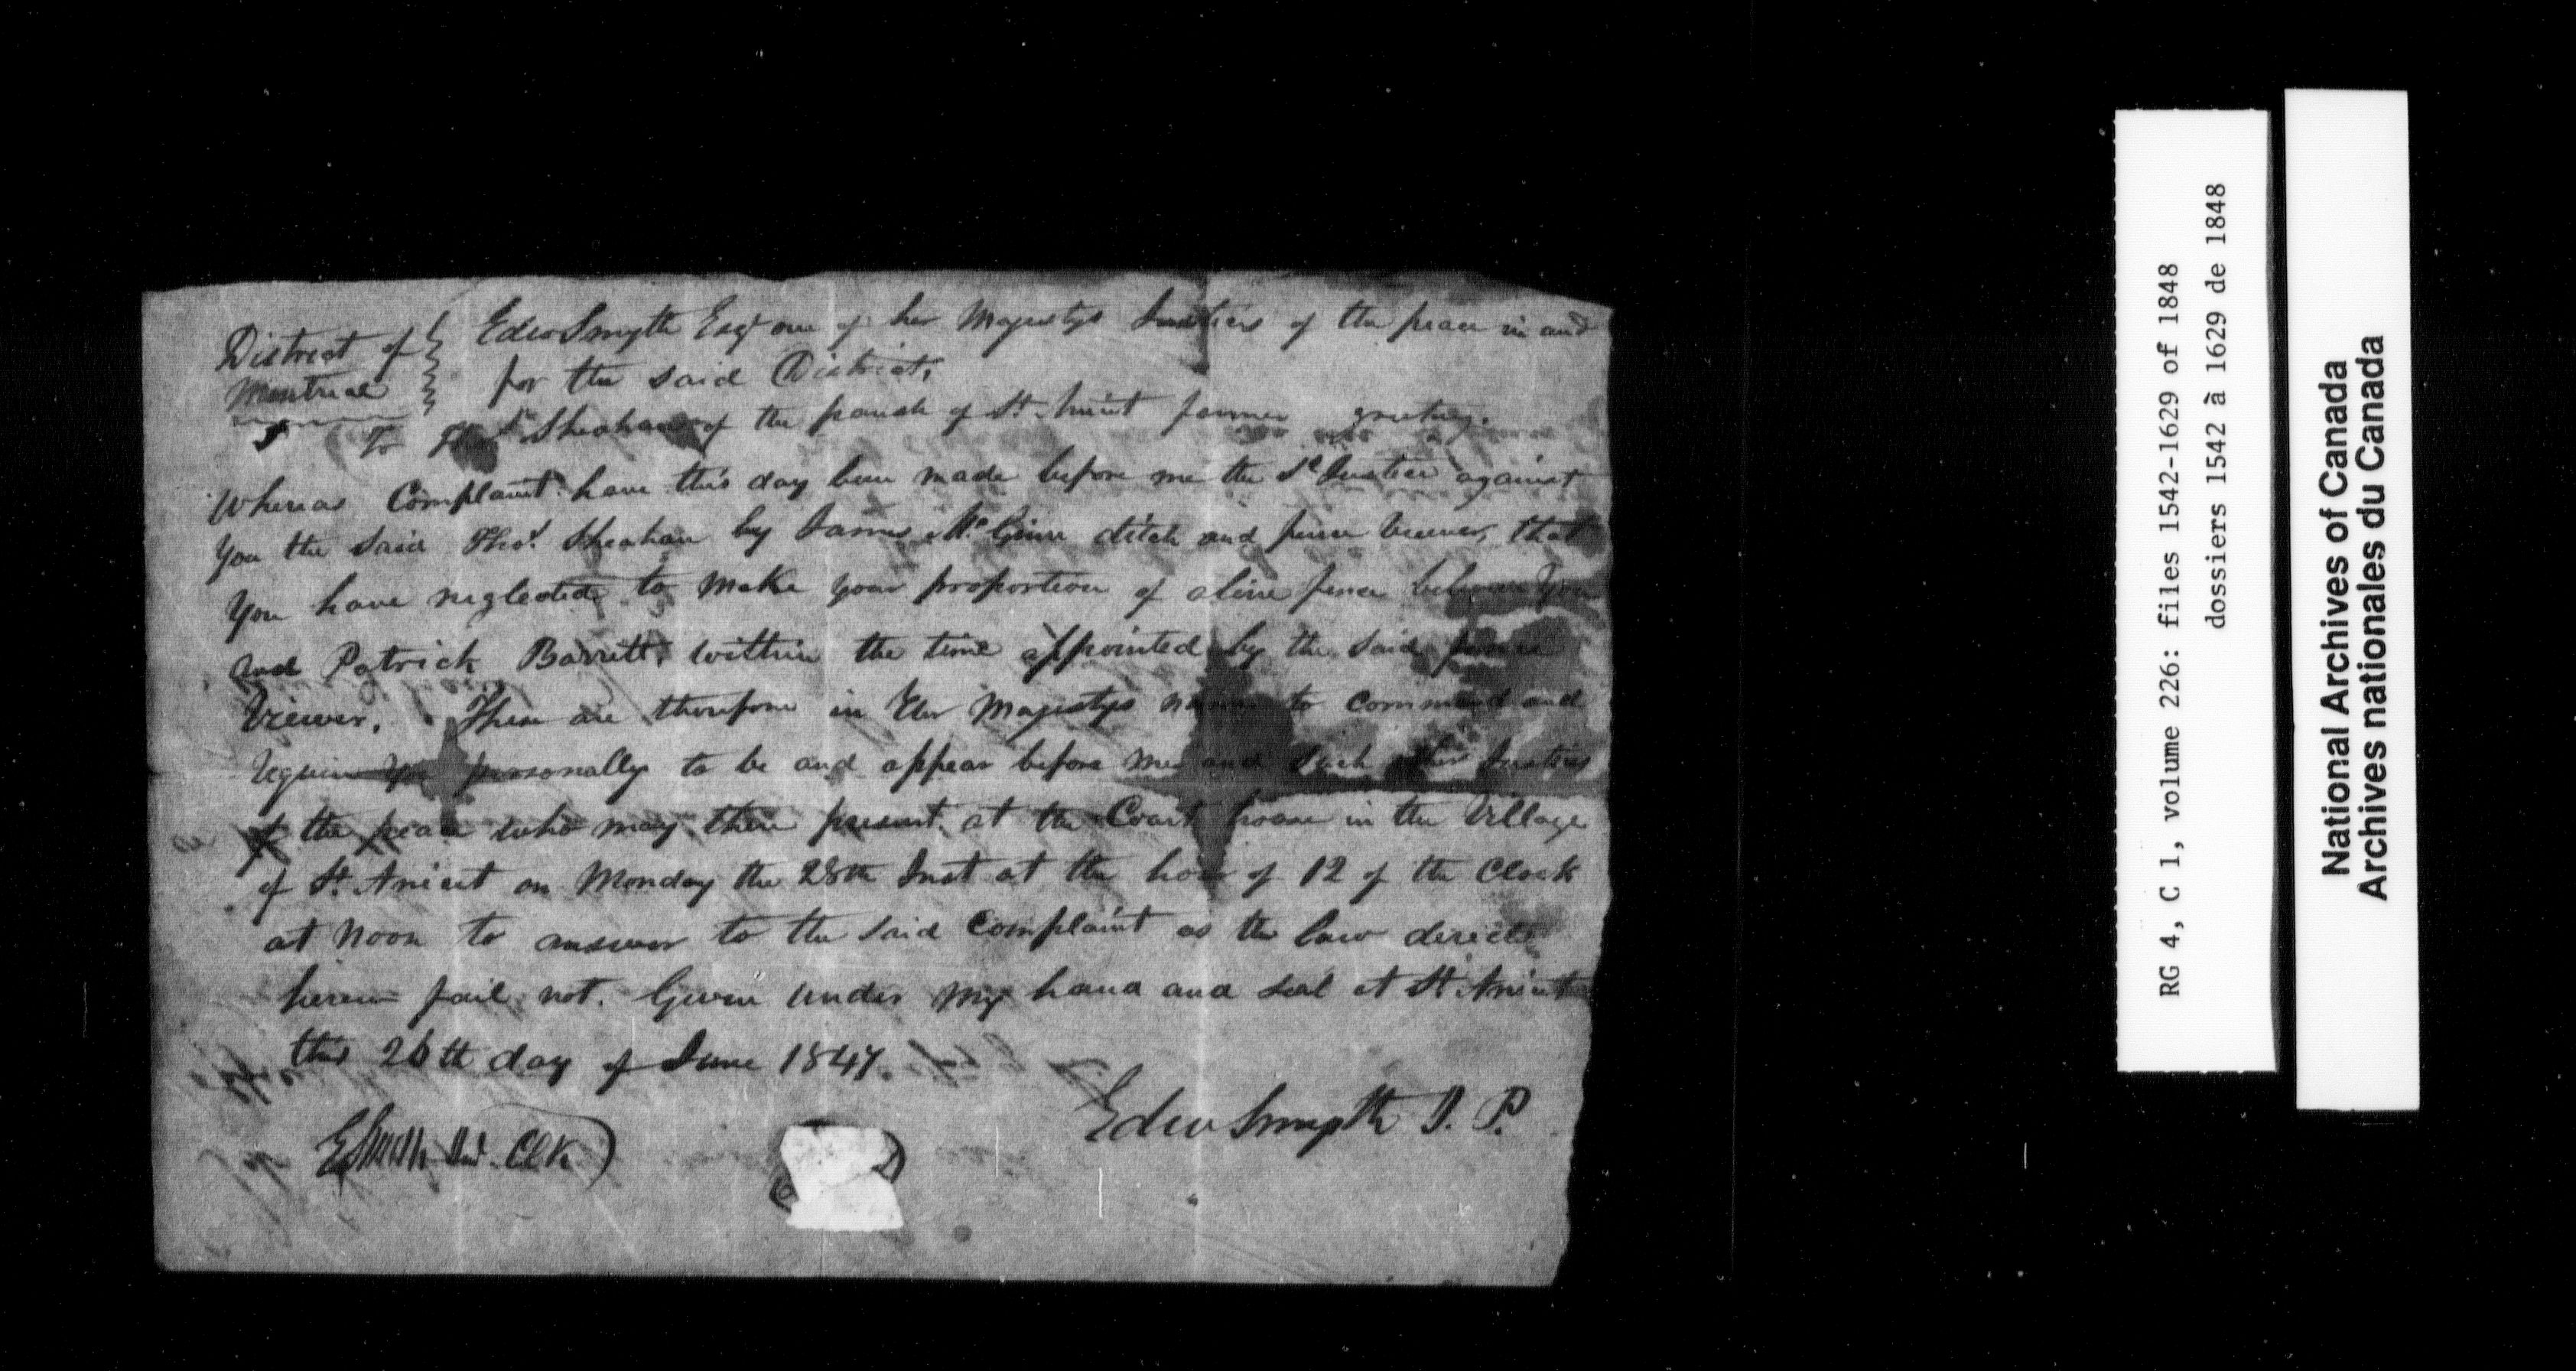 District of } Edw Smyth Esqr one of her Majestys Justices of the peace in and
Montreal } for the said District,
To Thos Sheahan of the parish of St. Anicet farmer greeting.
Whereas Complaint have this day been made before me the Sd Justice against
You the Said Thos. Sheahan by James McGinn ditch and fence viewer, that
You have neglected to Make your proportion of a line fence between You
and Patrick Barrett, within the time appointed by the Said fence
Viewer. These are therefore in Her Majestys name to command and
Require You personally to be and appear before me and Such other Justices
of the peace who may then present at the Court house in the Village
of St. Anicet on Monday the 28th Inst at the hour of 12 of the Clock
at Noon to answer to the Said Complaint as the law directs
herein fail not. Given under My hand and Seal at St Anicet
this 26th day of June 1847.
Edw Smyth J. P.
Clk
RG 4, C 1, volume 226: files 1542-1629 of 1848
dossiers 1542 à 1629 de 1848
National Archives of Canada
Archives nationales du Canada